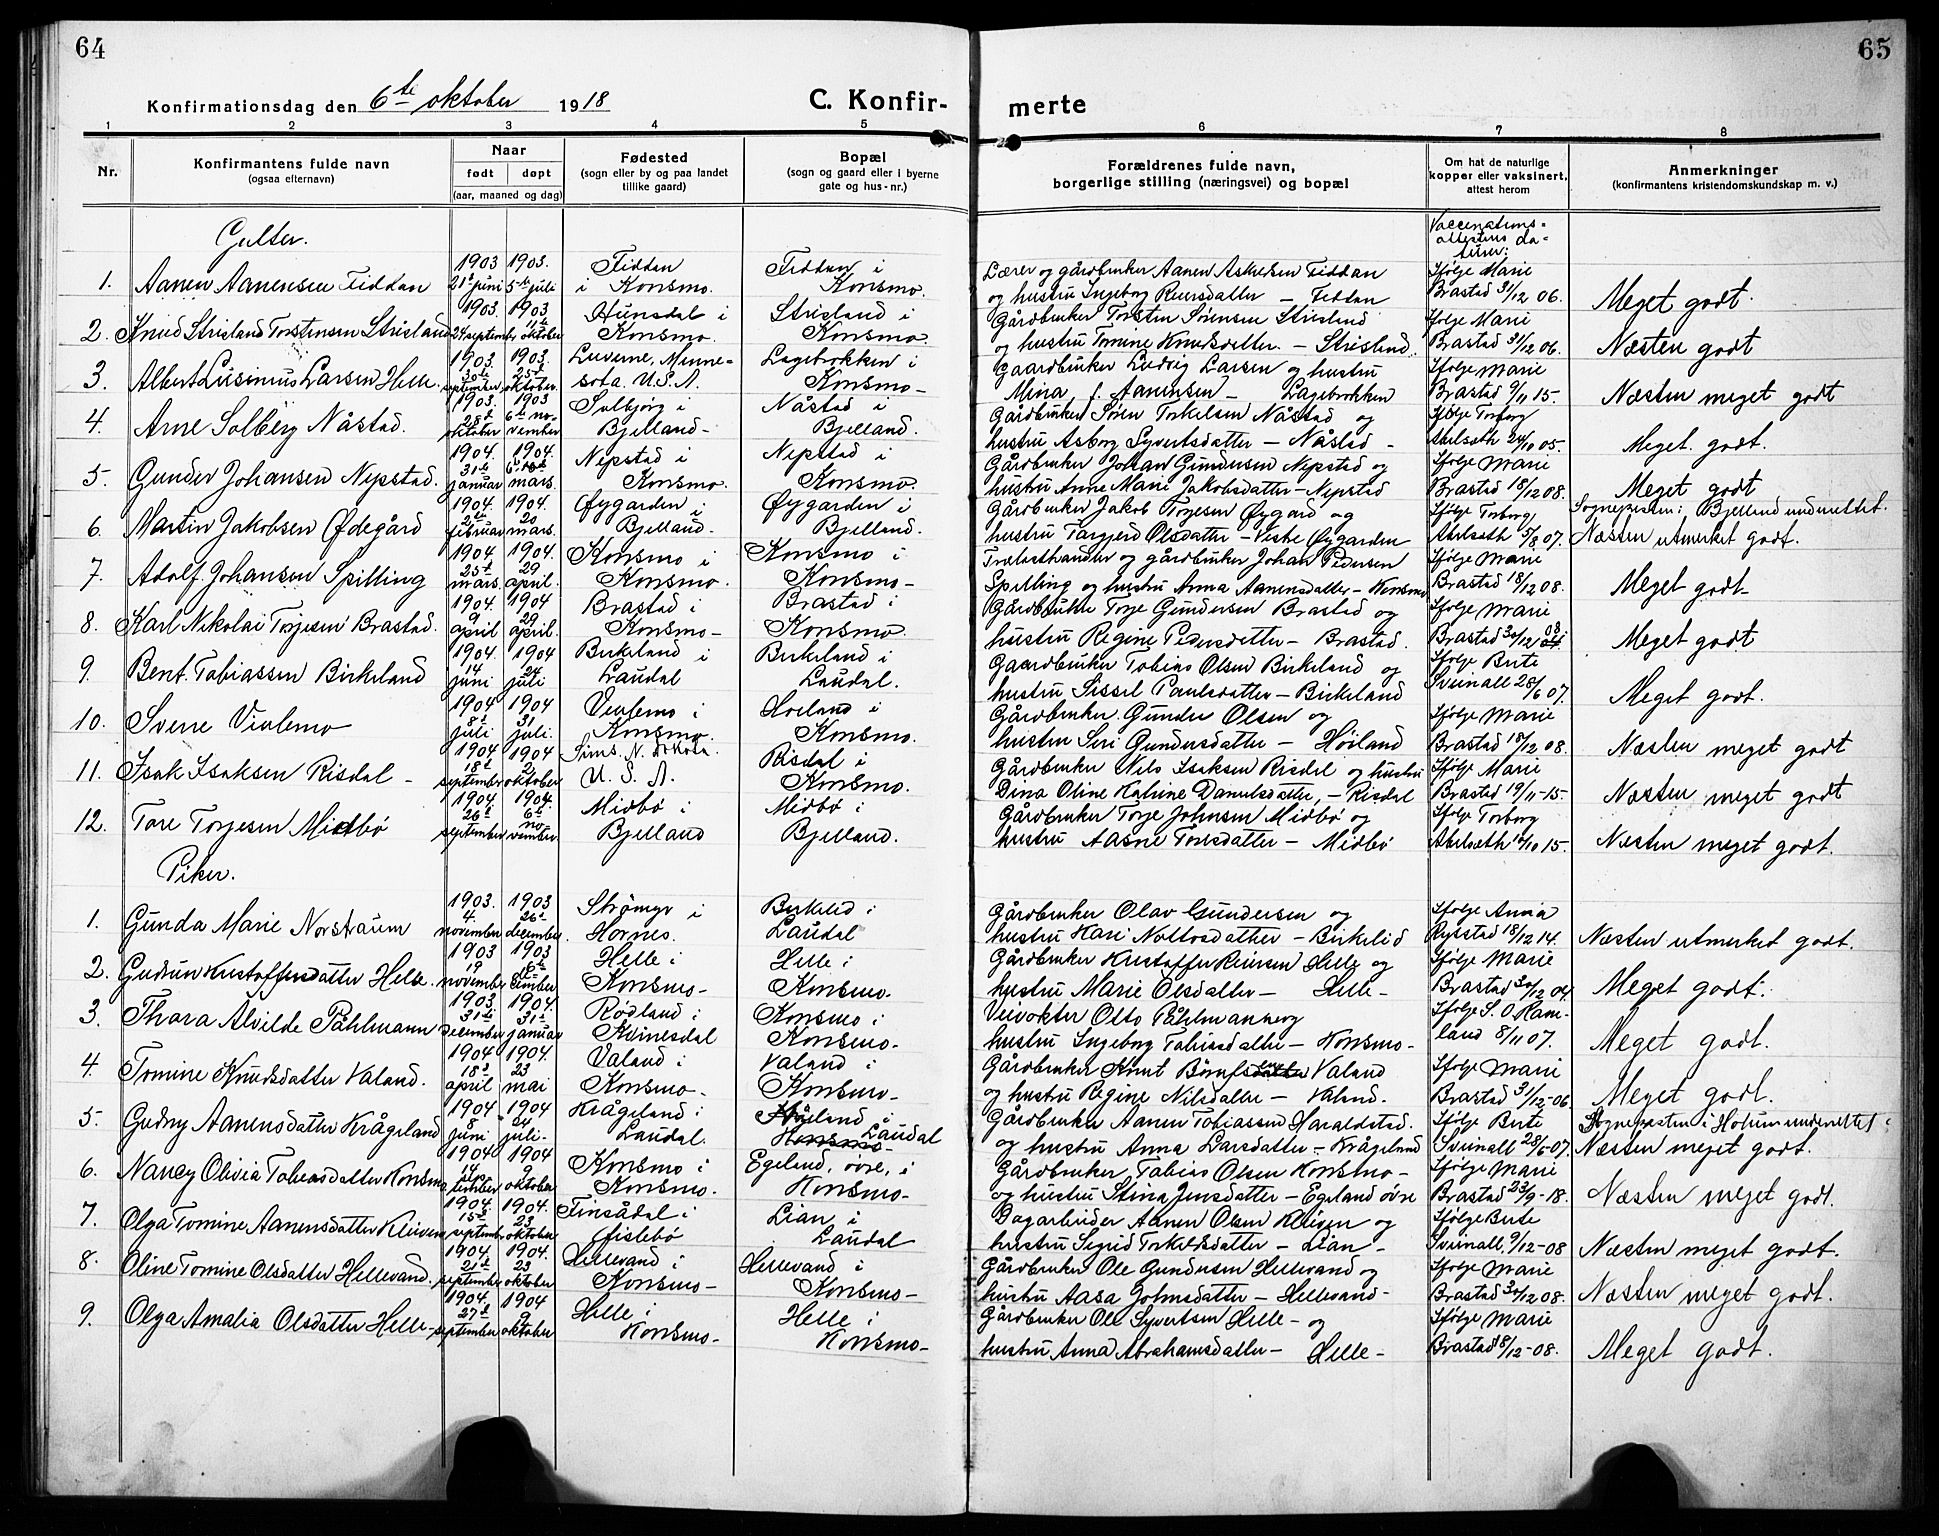 64
65
Konfirmationsdag den 6te oktober 1918
C. Konfir-
merte
1 2 3 4 5 6 7 8
Nr.
Konfirmantens fulde navn
(ogsaa efternavn)
Naar
født døpt
(aar, maaned og dag)
Fødested
(sogn eller by og paa landet
tillike gaard)
Bopæl
(sogn og gaard eller i byerne
gate og hus-nr.)
Forældrenes fulde navn,
borgerlige stilling (næringsvei) og bopæl
Om hat de naturlige
kopper eller vaksinert,
attest herom
Anmerkninger
(konfirmantens kristendomskundskap m. v.)
Gutter.
Vaccenations-
attestens da-
tum:
1903 1903. Fiddan Fiddan i Lærer og gårdbruker Aanen Askelsen Fiddan Ifølge Marie
1. Aanen Aanensen Fiddan 21de juni 5te juli i Konsmo. Konsmo. og hustru Ingeborg Reiersdatter - Fiddan Brastad 31/12 06. Meget godt.
1903. 1903. Hunsdal i Strisland i Gårdbruker Torsten Sørensen Strisland Ifølge Marie
2. Knud Strisland Torstensen Strisland 24 september oktober Konsmo. Konsmo. og hustru Tomine Knudsdatter. - Strisland. Brastad 31/12 06. Næsten godt
1903. 1903. Luverne, Minne- Lagebrokken i Gaardbruker Ludvig Larsen og hustru Ifølge Marie
3. Albert Lusimus Larsen Helle. 30te september 25de oktober. sota. U.S.A. Konsmo- Mina, f. Aanensen - Lagebrokken Brastad 9/11 15. Næsten meget godt
1903. 1903 Solbjørg i Nåstad i Gårdbruker Søren Torkelsen Nåstad og Ifølge Torborg
4. Arne Solberg Nåstad. 28de oktober 6te november Bjelland- Bjelland. hustru Asborg Syvertsdatter - Nåstad - Abelseth 24/10 05. Meget godt.
1904. 1904. Nepstad i Nepstad i Gårdbruker Johan Gundersen Nepstad og Ifølge Marie
5. Gunder Johansen Nepstad. 31te januar mars. Konsmo. Konsmo. hustru Anne Marie Jakobsdatter - Nepstad Brastad 18/12 08. Meget godt
1904. 1904. Øygarden i Øygarden i Gårdbruker Jakob Torjesen Øygard og Ifølge Torborg Sognepresten i Bjelland undervittet.
6. Martin Jakobsen Ødegård februar 20 mars. Bjelland. Bjelland. hustru Torgjerd Olsdatter - Vestre Øygarden Abelseth 5/8 07. Næsten utmerket godt.
1904 1904. Konsmo i Konsmo i Trelasthandler og gårdbruker Johan Pedersen Ifølge Marie
7. Adolf Johansen Spilling 25de mars. 29 april. Konsmo. Konsmo- Spilling og hustru Anna Aanensdatter - Konsmo Brastad 18/12 08. Meget godt
1904. 1904 Brastad i Brastad i Gårdbruker Torje Gundersen Brastad og Ifølge Marie
8. Karl Nikolai Torjesen Brastad. 9 april 29 april. Konsmo- Konsmo. hustru Regine Pedersdatter - Brastad. Brastad 30/12 08 Meget godt
1904. 1904 Birkeland i Birkeland i Gaardbruker Tobias Olsen Birkeland og Ifølge Berte
9 Bent Tobiassen Birkeland 14 juni 24 juli Laudal Laudal. hustru Sissel Paulsdatter - Birkeland Sveinall 28/6 07. Meget godt.
1904 1904 Viulemo i Høiland i Gårdbruker Gunder Olsen og Ifølge Marie
10. Sverre Viulemo 8de juli 31 juli. Konsmo. Konsmo. hustru Siri Gundersdatter - Høiland Brastad 18/12 08. Næsten meget godt
1904 1904 Sims. N. Dkota. Risdal i Gårdbruker Nils Isaksen Risdal og hustru Ifølge Marie
11. Isak Isaksen Risdal - 18de september 2 oktober U.S.A. Konsmo. Dina Oline Katrine Danielsdatter - Risdal Brastad 19/11-15. Næsten meget godt
1904. 1904. Midbø i Midbø i Gårdbruker Torje Johnsen Midbø og Ifølge Torborg
12. Tore Torjesen Midbø 26de september 6te november Bjelland Bjelland. hustru Aasne Toresdatter - Midbø Abelseth 14/10 15. Næsten meget godt.
Piker.
1903. 1903 Strømyr i Birkelid i Gårdbruker Olav Gundersen og Ifølge Anna
1. Gunda Marie Norstraum 4. november 26de december. Hornes. Laudal hustru Kari Noltosdatter - Birkelid 18/12 14. Næsten utmerket godt.
1903 1903 Helle i Helle i Gårdbruker Kristoffer Reiersen Helle og Ifølge Marie
2. Gudrun Kristoffersdatter Helle. 19 november 6te Konsmo- Konsmo. hustru Marie Olsdatter - Helle - Brastad 30/12 04. Meget godt.
1903. 1904. Rødland i Konsmo i Veivokter Otto Påhlmann og Ifølge S. O. Hane-
3. Thora Alvilde Påhlmann 31te december 31te januar Kvinesdal Konsmo- hustru Ingeborg Tobiasdatter - Konsmo- land 8/11 07. Meget godt.
1904 1904 Valand i Valand i Gårdbruker Knut Valand Ifølge Marie
4. Tomine Knudsdatter Valand. 18de april 23 mai Konsmo- Konsmo- og hustru Regine Nilsdatter - Valand. Brastad 31/12-06 Meget godt.
1904 1904 Krågeland i Gårdbruker Aanen Tobiassen Haraldstad. Ifølge Berte Sognepresten i Holum undervittet
5. Gudny Aanensdatter Krågeland 8 juni 24 juli- Laudal. Konsmo- Laudal og hustru Anna Larsdatter - Krågeland Sveinall 28/6-07. Næsten meget godt.
1904 1904 Konsmo i Egeland, øvre, i Gårdbruker Tobias Olsen Konsmo- Ifølge Marie
6. Nancy Olivia Tobiasdatter Konsmo 9 oktober Konsmo. Konsmo- og hustru Stina Jensdatter - Egeland øvre Brastad 23/9-18. Næsten meget godt.
1904. 1904. Finsådal i Lian i Dagarbeider Aanen Olsen Kleiven og Ifølge Berte
7. Olga Tomine Aanensdatter Kleiven 15de september 23 oktober Fislebø Laudal hustru Sigrid Torkeldsdatter - Lian - Sveinall 9/12-08 Næsten meget godt.
1904. 1904. Hellevand i Hellevand i Gårdbruker Ole Gundersen Hellevand og Ifølge Marie
8. Oline Tomine Olsdatter Hellevand. 21de september 23 oktober Konsmo- Konsmo- hustru Aasa Johnsdatter - Hellevand- Brastad 30/12 08. Næsten meget godt.
1904. 1904 Helle i Helle i Gårdbruker Ole Syvertsen Helle - og Ifølge Marie
9. Olga Amalia Olsdatter Helle- 27de september 9 oktober Konsmo- Konsmo- hustru Anna Abrahamsdatter - Helle - Brastad 18/12-08. Meget godt.